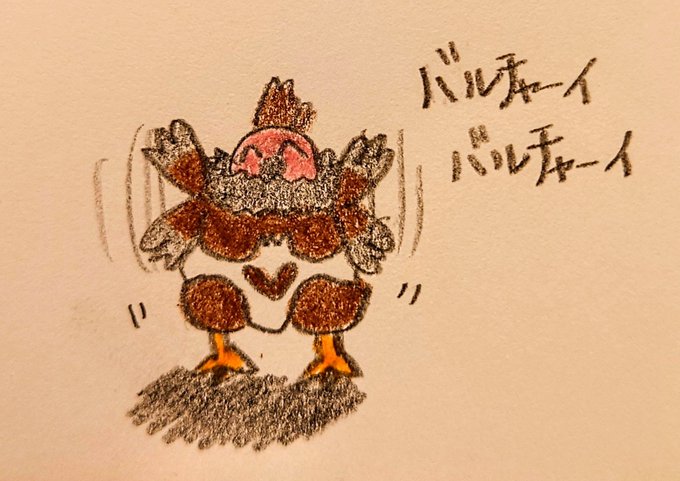 バルチャーイ
バルチャーイ